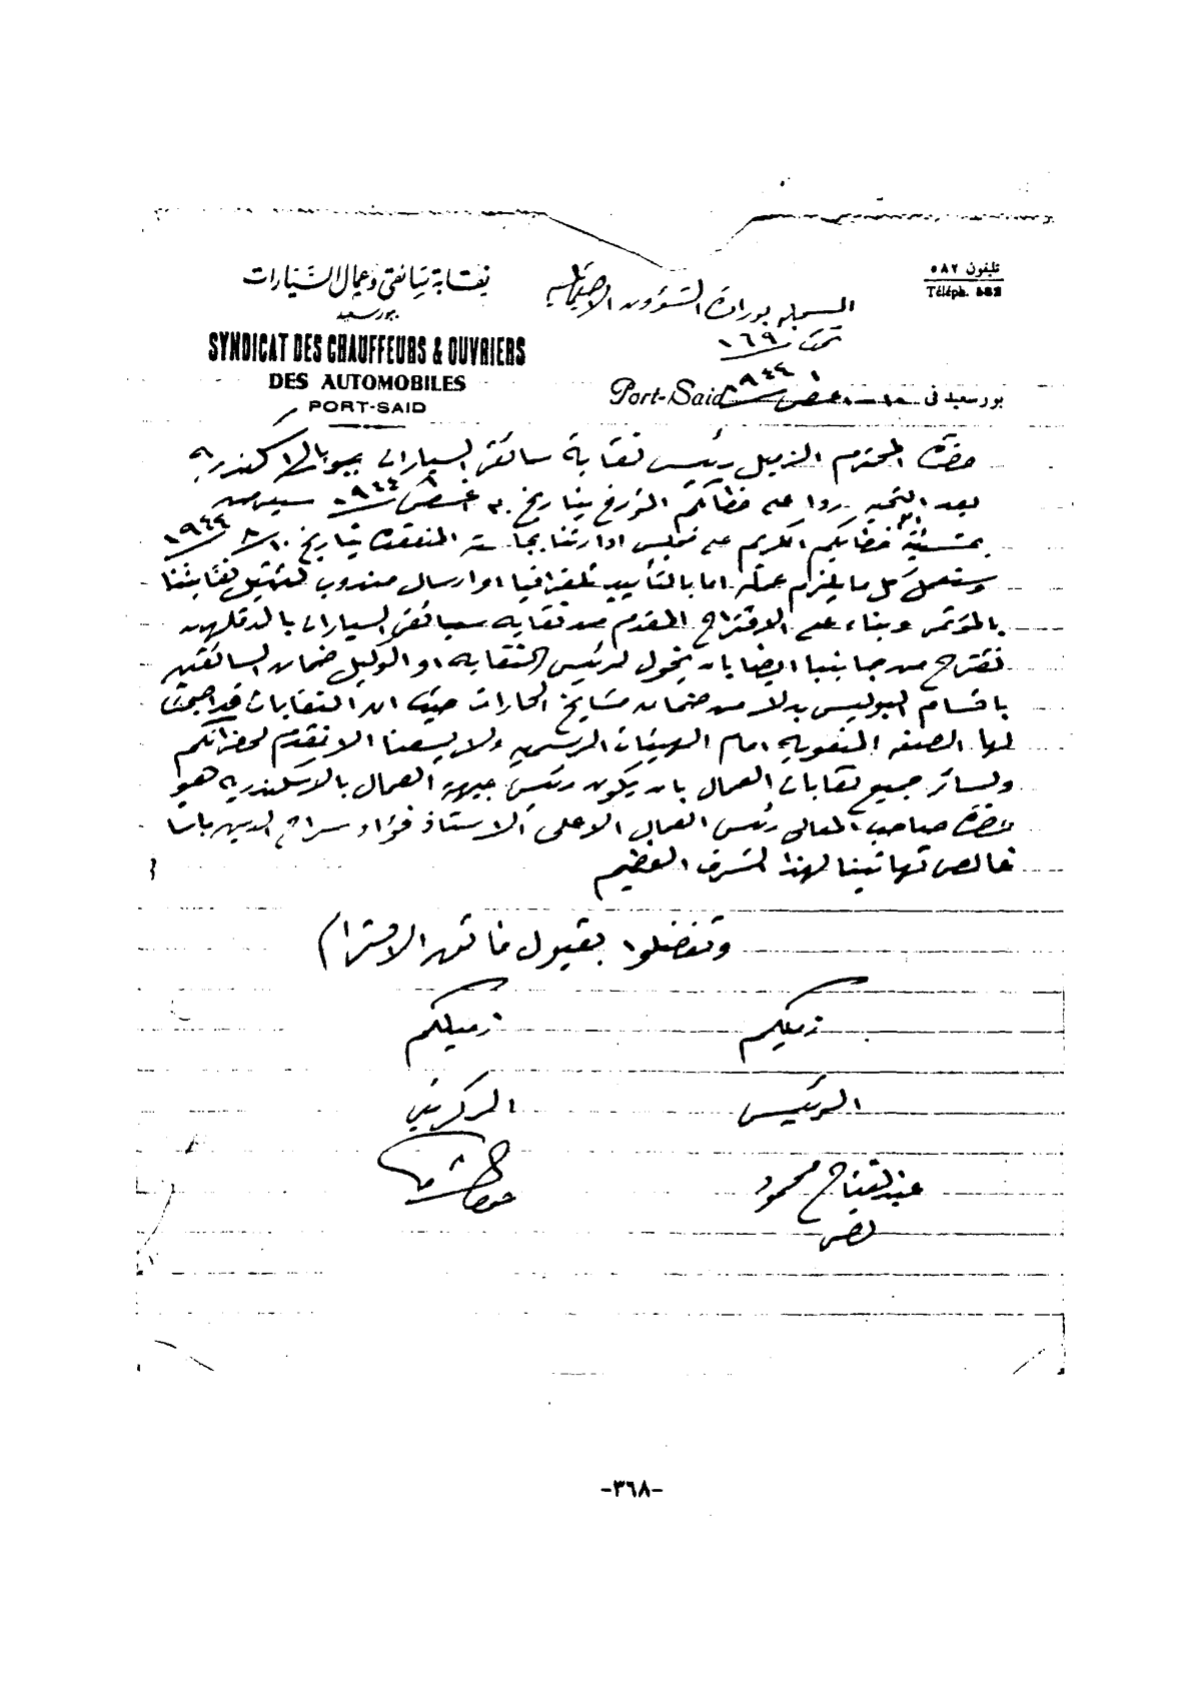 تليفون ٥٨٢
Téléph. 582
نقابة سائقى وعمال السيارات
ببورسعيد
SYNDICAT DES CHAUFFEURS & OUVRIERS
DES AUTOMOBILES
PORT-SAID
المسجلة بوزارة الشؤون الاجتماعية
تحت ١٦٩
بورسعيد فى ١٠ اغسطس ١٩٤٤ Port-Said
حضرة المحترم الزميل رئيس نقابة سائقى السيارات بالاسكندرية
بعد التحية ردا على خطابكم المؤرخ بتاريخ اغسطس ١٩٤٤ سيعرض
بمشيئة خطابكم الكريم على مجلس ادارتنا بجلسته المنعقدة بتاريخ ١٠/٨/١٩٤٤
وسنعمل كل ما يلزم عمله اما بالتأييد تلغرافيا او ارسال مندوب لتمثيل نقابتنا
بالمؤتمر وبناء على الاقتراح المقدم من نقابة سائقى السيارات بالدقهلية
نقترح من جانبنا ايضا بان يخول لرئيس النقابة او الوكيل ضمان السائقين
باقسام البوليس بدلا من ضمان مشايخ الحارات حيث ان النقابات قد اصبحت
لها الصفة المعنوية امام الهيئات الرسمية ولا يسعنا الا نتقدم لحضراتكم
ولسائر جميع نقابات العمال بان يكون رئيس جبهة العمال بالاسكندرية هو
حضرة صاحب المعالى رئيس العمال الاعلى الاستاذ فؤاد سراج الدين باشا
خالص تهانينا لهذا الشرف العظيم
وتفضلوا بقبول فائق الاحترام
زميلكم زميلكم
الرئيس السكرتير
عبد الفتاح محمود
-٣٦٨-